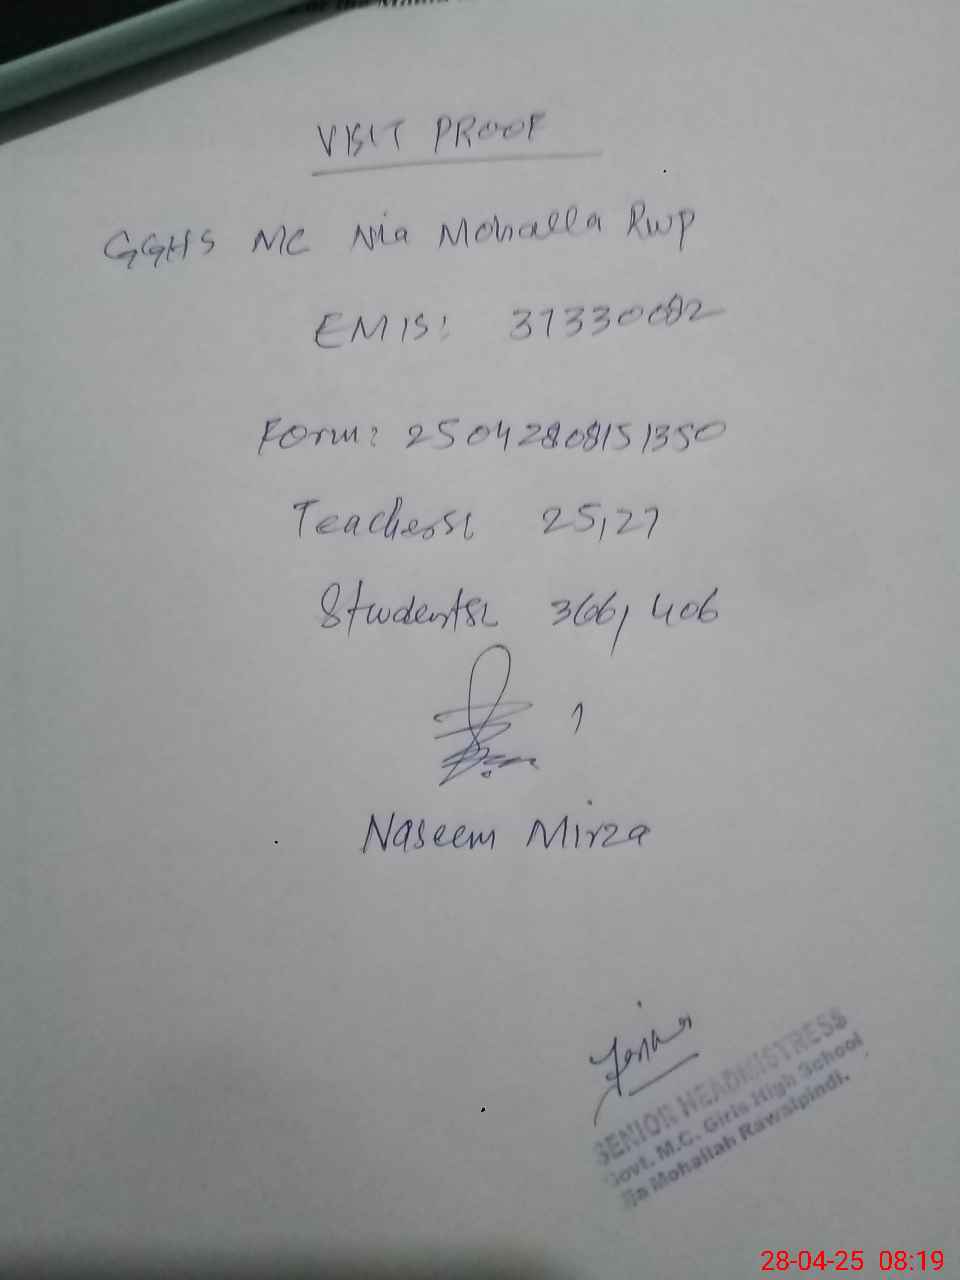 VISIT PROOF
GGHS MC Nia Mohalla Rwp
EMIS: 37330082
Form: 25042808151350
Teachers: 25,27
Students: 366, 406
Naseem Mirza
SENIOR HEADMISTRESS
Govt. M.C. Girls High School
Mohallah Rawalpindi.
28-04-25 08:19